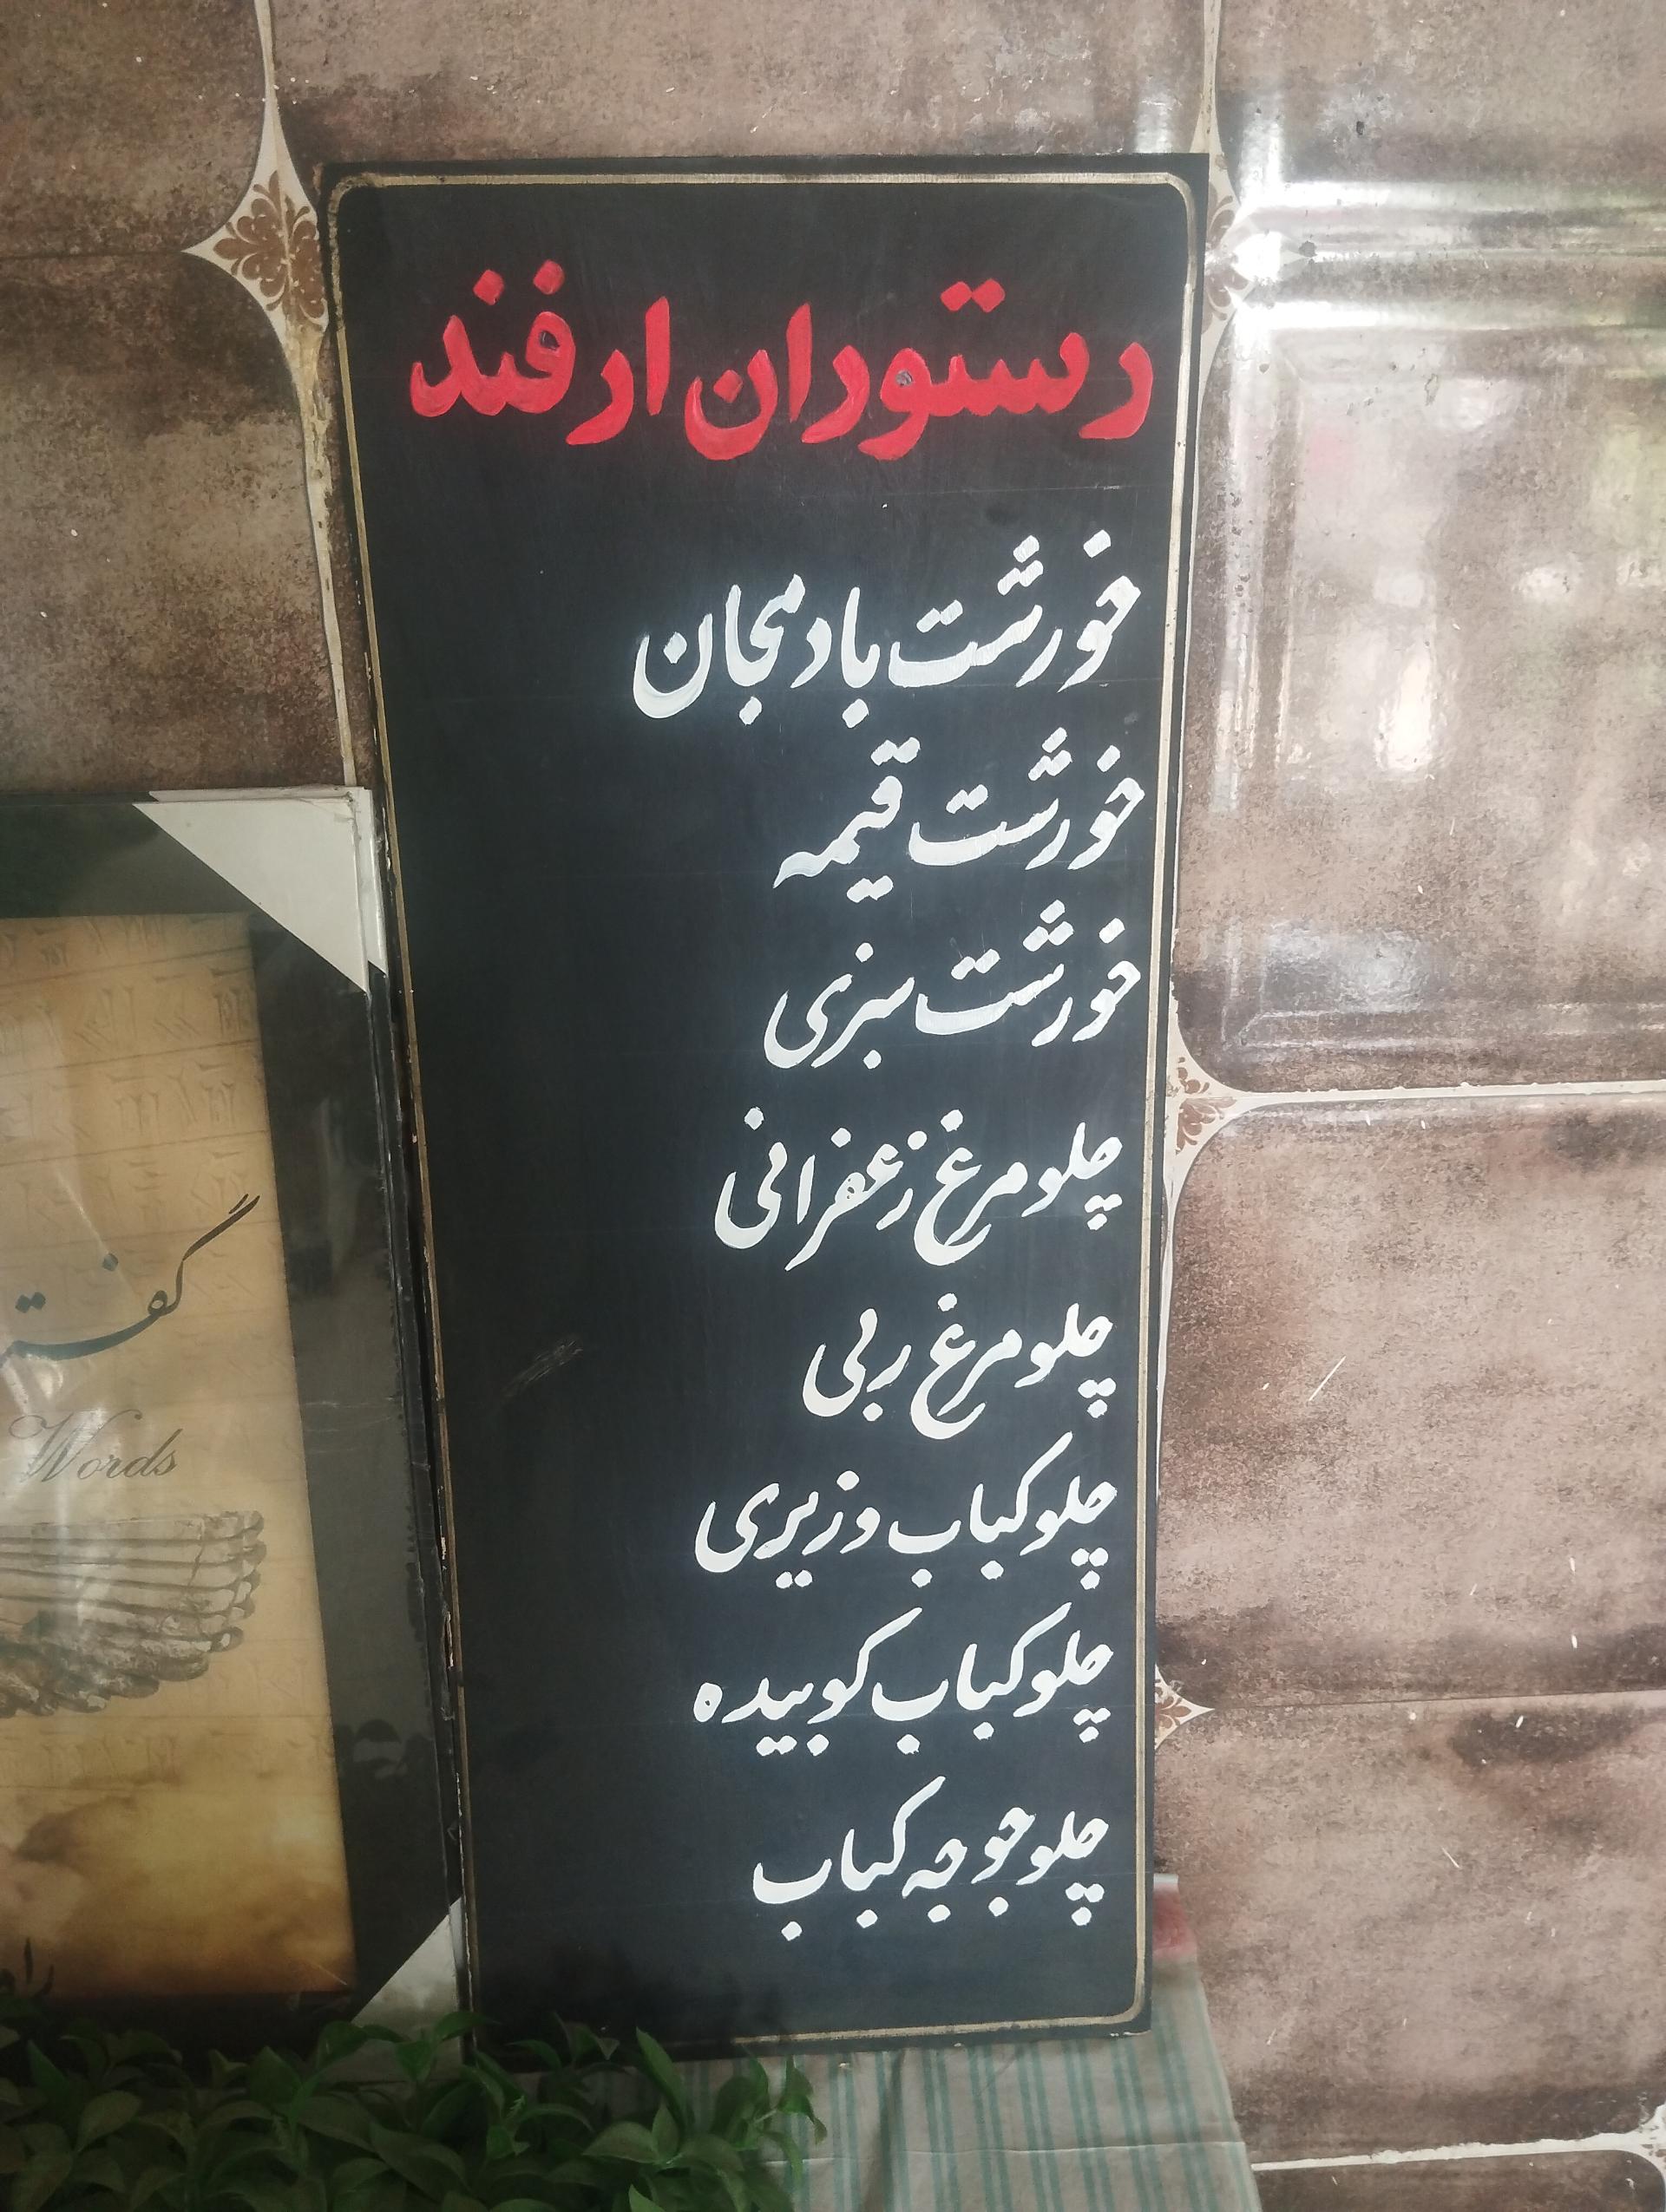 رستوران ارفند
خورشت بادمجان
خورشت قیمه
خورشت سبزی
چلو مرغ زعفرانی
چلو مرغ ربی
چلو کباب وزیری
چلو کباب کوبیده
چلو جوجه کباب
Words